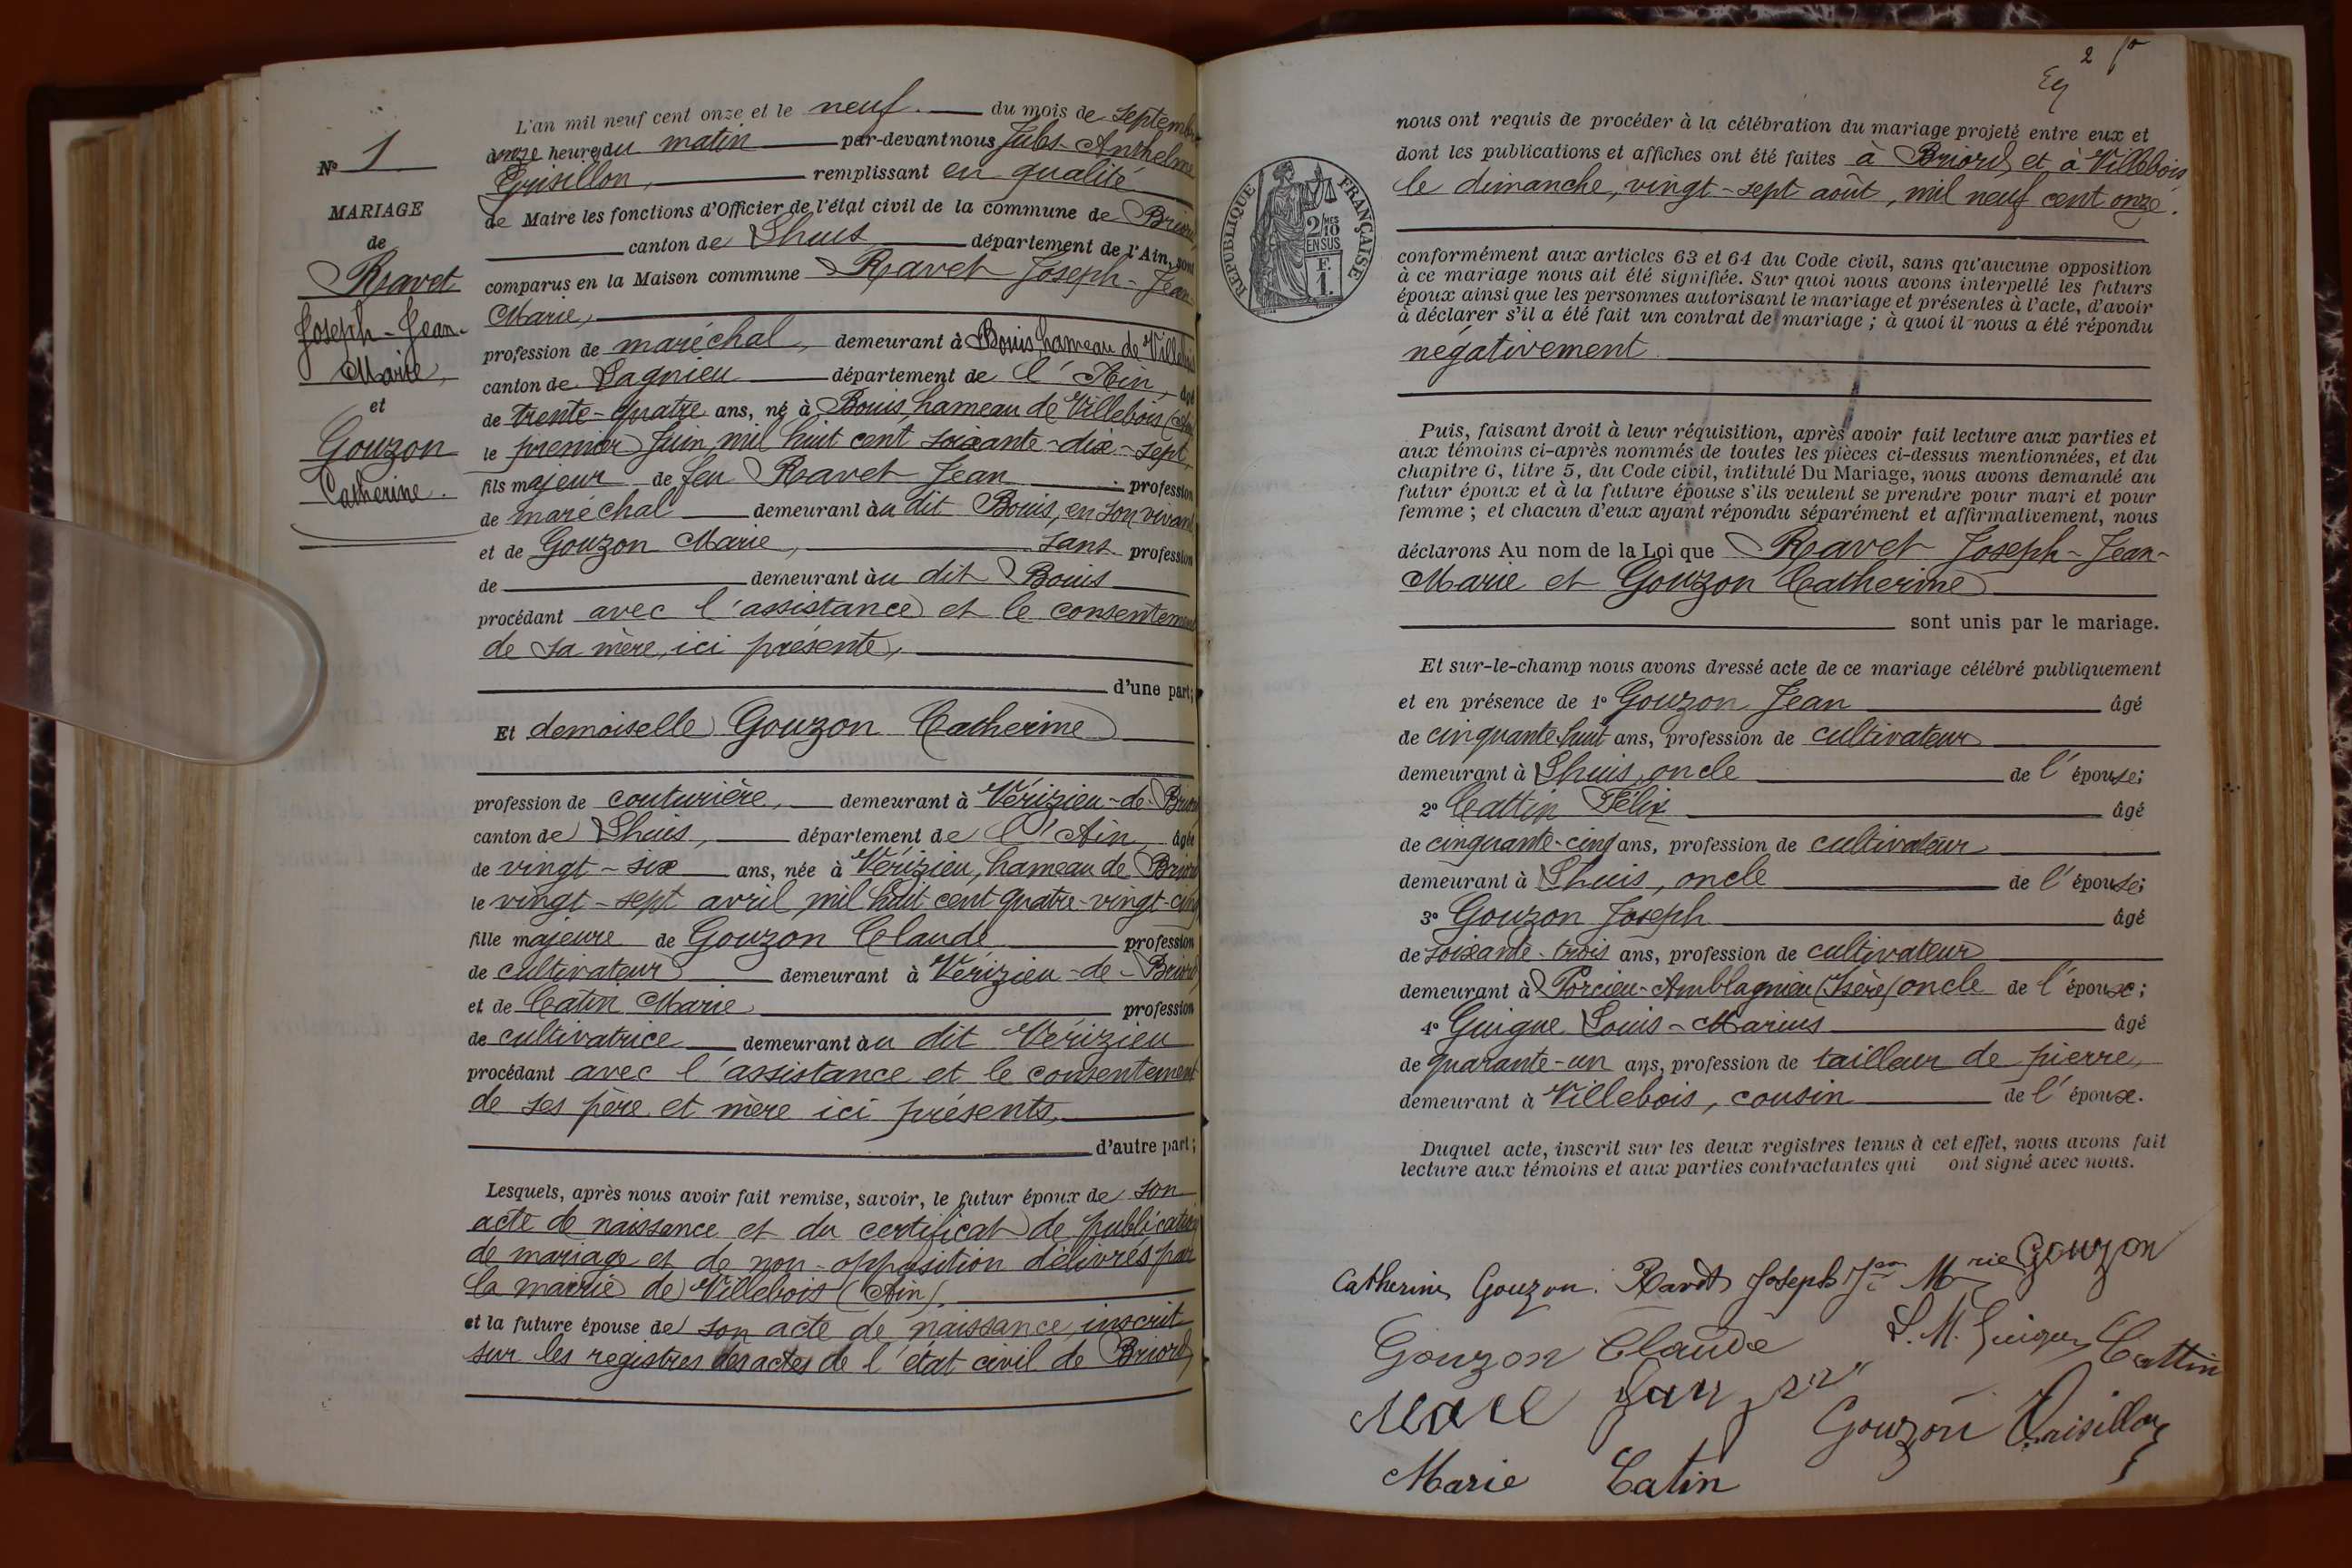 N° 1
MARIAGE
de
Ravet
Joseph-Jean-
Marie,
et
Gouzon
Catherine.
L'an mil neuf cent onze et le neuf du mois de septembre
onze heures du matin par-devant nous Jules-Anthelme
Grisillon, remplissant en qualité
de Maire les fonctions d'Officier de l'état civil de la commune de Briord,
canton de Lhuis département de l'Ain, sont
comparus en la Maison commune Ravet Joseph-Jean-
Marie,
profession de maréchal, demeurant à Bouis hameau de Villebois
canton de Lagnieu département de l'Ain, âgé
de trente-quatre ans, né à Bouis, hameau de Villebois (Ain)
le premier Juin mil huit cent soixante-dix-sept,
fils majeur de feu Ravet Jean profession
de maréchal demeurant au dit Bouis, en son vivant
et de Gouzon Marie, sans profession
de demeurant au dit Bouis
procédant avec l'assistance et le consentement
de sa mère, ici présente,
d'une part;
Et demoiselle Gouzon Catherine
profession de couturière, demeurant à Vérizieu-de-Briord
canton de Lhuis, département de l'Ain, âgée
de vingt-six ans, née à Vérizieu, hameau de Briord
le vingt-sept avril mil huit cent quatre-vingt-cinq
fille majeure de Gouzon Claude profession
de cultivateur demeurant à Vérizieu-de-Briord
et de Catin Marie profession
de cultivatrice demeurant au dit Vérizieu
procédant avec l'assistance et le consentement
de ses père et mère ici présents,
d'autre part;
Lesquels, après nous avoir fait remise, savoir, le futur époux de son
acte de naissance et du certificat de publication
de mariage et de non-opposition délivrés par
la mairie de Villebois (Ain).
et la future épouse de son acte de naissance, inscrit
sur les registres des actes de l'état civil de Briord,
2
nous ont requis de procéder à la célébration du mariage projeté entre eux et
dont les publications et affiches ont été faites à Briord, et à Villebois
le dimanche, vingt-sept août, mil neuf cent onze.
REPUBLIQUE FRANÇAISE
2/10 MES
EN SUS
F.
1.
conformément aux articles 63 et 64 du Code civil, sans qu'aucune opposition
à ce mariage nous ait été signifiée. Sur quoi nous avons interpellé les futurs
époux ainsi que les personnes autorisant le mariage et présentes à l'acte, d'avoir
à déclarer s'il a été fait un contrat de mariage ; à quoi il nous a été répondu
négativement.
Puis, faisant droit à leur réquisition, après avoir fait lecture aux parties et
aux témoins ci-après nommés de toutes les pièces ci-dessus mentionnées, et du
chapitre 6, titre 5, du Code civil, intitulé Du Mariage, nous avons demandé au
futur époux et à la future épouse s'ils veulent se prendre pour mari et pour
femme ; et chacun d'eux ayant répondu séparément et affirmativement, nous
déclarons Au nom de la Loi que Ravet Joseph-Jean-
Marie et Gouzon Catherine
sont unis par le mariage.
Et sur-le-champ nous avons dressé acte de ce mariage célébré publiquement
et en présence de 1° Gouzon Jean âgé
de cinquante-huit ans, profession de cultivateur
demeurant à Lhuis, oncle de l'épouse;
2° Cattin Félix âgé
de cinquante-cinq ans, profession de cultivateur
demeurant à Lhuis, oncle de l'épouse;
3° Gouzon Joseph âgé
de soixante-trois ans, profession de cultivateur
demeurant à Porcieu-Amblagnieu (Isère) oncle de l'époux;
4° Guigue Louis-Marius âgé
de quarante-un ans, profession de tailleur de pierre,
demeurant à Villebois, cousin de l'époux.
Duquel acte, inscrit sur les deux registres tenus à cet effet, nous avons fait
lecture aux témoins et aux parties contractantes qui ont signé avec nous.
Catherine Gouzon. Ravet Joseph Jean Mrie Gouzon
Gouzon Claude L. M. Guigue Cattin
Gouzon Grisillon
Marie Catin